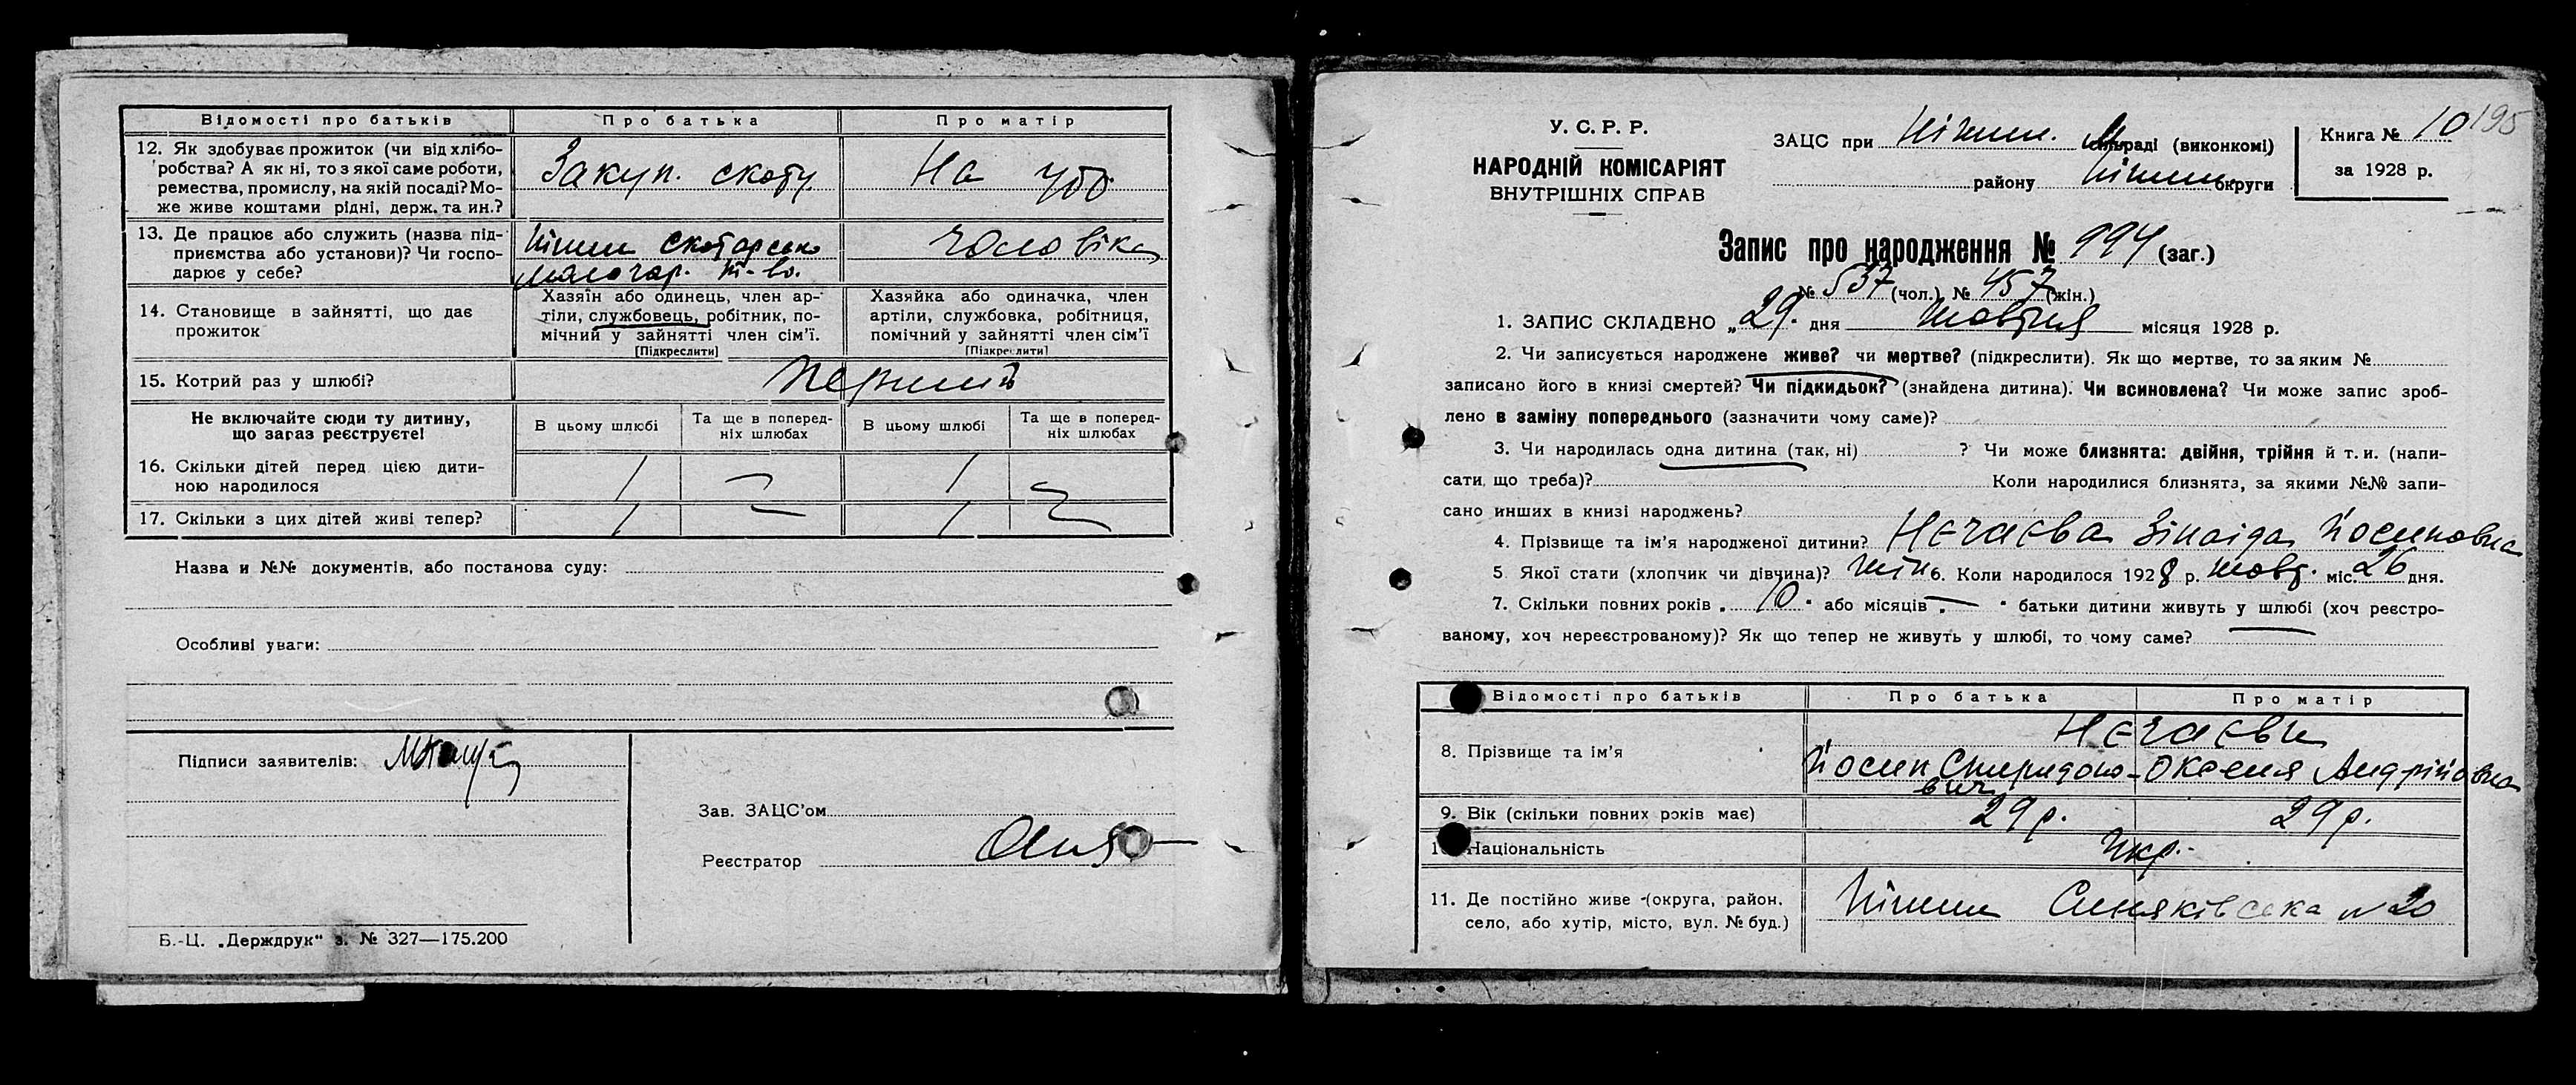 Відомості про батьків Про батька Про матір
12. Як здобуває прожиток (чи від хлібо- Закуп. скоту На утр.
робства? А як ні, то з якої саме роботи,
ремества, промислу, на якій посаді? Мо-
же живе коштами рідні, держ. та ин.?
13. Де працює або служить (назва під- Ніжин скотарсько чоловіка
приємства або установи)? Чи госпо- молочар. т-во.
дарює у себе?
14. Становище в зайнятті, що дає
прожиток
Хазяїн або одинець, член ар-
тіли, службовець, робітник, по-
мічний у зайнятті член сім'ї.
[Підкреслити]
Хазяйка або одиначка, член
артіли, службовка, робітниця,
помічний у зайнятті член сім'ї
[Підкреслити]
15. Котрий раз у шлюбі? перший
Не включайте сюди ту дитину,
що зараз реєструєте!
В цьому шлюбі
Та ще в поперед-
ніх шлюбах
В цьому шлюбі
Та ще в поперед-
ніх шлюбах
16. Скільки дітей перед цією дити- 1 — 1 —
ною народилося
17. Скільки з цих дітей живі тепер? 1 — 1 —
Назва и №№ документів, або постанова суду:
Особливі уваги:
Підписи заявителів:
Зав. ЗАЦС'ом
Реєстратор
Б.-Ц. „Держдрук" з. № 327—175.200
У. С. Р. Р.
НАРОДНІЙ КОМІСАРІЯТ
ВНУТРІШНІХ СПРАВ
ЗАЦС при Ніжин. раді (виконкомі)
району Ніжин. округи
Книга № 10 195
за 1928 р.
Запис про народження № 994 (заг.)
№ 537 (чол.) № 457 (жін.)
1. ЗАПИС СКЛАДЕНО „29. дня жовтня місяця 1928 р.
2. Чи записується народжене живе? чи мертве? (підкреслити). Як що мертве, то за яким №
записано його в книзі смертей? Чи підкидьок? (знайдена дитина). Чи всиновлена? Чи може запис зроб-
лено в заміну попереднього (зазначити чому саме)?
3. Чи народилась одна дитина (так, ні) ? Чи може близнята: двійня, трійня й т. и. (напи-
сати, що треба)? Коли народилися близнята, за якими №№ запи-
сано инших в книзі народжень?
4. Прізвище та ім'я народженої дитини? Нєчаєва Зінаіда Йосиповна
5 Якої стати (хлопчик чи дівчина)? жін 6. Коли народилося 1928 р. жовт. міс. 26 дня.
7. Скільки повних років „ 10 " або місяців „ — " батьки дитини живуть у шлюбі (хоч реєстро-
ваному, хоч нереєстрованому)? Як що тепер не живуть у шлюбі, то чому саме?
Відомості про батьків Про батька Про матір
Нєчаєви
8. Прізвище та ім'я Йосип Спиридоно- Оксеня Андрійовна
вич
9. Вік (скільки повних років має) 29 р. 29 р.
Національність Укр.
11. Де постійно живе (округа, район, Ніжин Синяківська № 20
село, або хутір, місто, вул. № буд.)